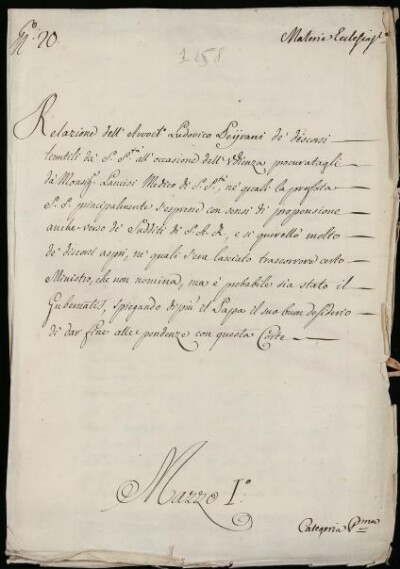 N.° 20.
Materie Ecclesiast.e
1158
Relazione dell' Avvoc.to Ludovico Peyrani de' discorsi
tenutili da S. S.tà all' occasione dell' Udienza procuratagli
da Monsig. Lancisi Medico di S. S.tà, ne' quali la prefata
S. S. principalmente s'espresse con sensi di propensione
anche verso de' Sudditi di S. A. R., e si querellò molto
de' discorsi aspri, ne' quali s'era lasciato trascorrere certo
Ministro, che non nomina, ma è probabile sia stato il
Gubernatis, spiegando di più il Pappa il suo buon desiderio
di dar fine alle pendenze con questa Corte
Mazzo I.°
Categoria P.ma